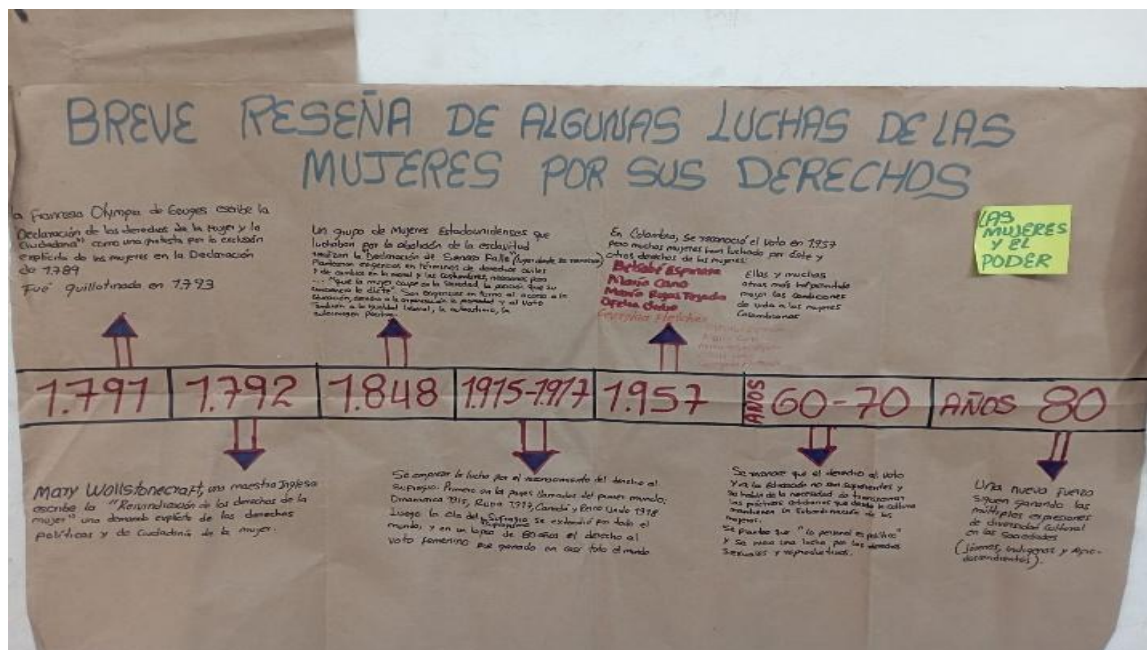 BREVE RESEÑA DE ALGUNAS LUCHAS DE LAS
MUJERES POR SUS DERECHOS
LAS
MUJERES
Y EL
PODER
a Francesa Olympia de Gouges escribe la
Declaración de los derechos de la Mujer y la
Ciudadana" como una protesta por la exclusión
explícita de las mujeres en la Declaración
de 1.789
Fué guillotinada en 1.793
Un grupo de Mujeres Estadounidenses que
luchaban por la abolición de la esclavitud
realizan la Declaración de Seneca Falls
exigencias en términos de derechos civiles
y de cambios en la moral y las costumbres, necesarios para
"que la mujer ocupe en la sociedad, la posición que su
conciencia le dicte"
educación, derecho a la propiedad y al Voto
También a la igualdad laboral,
En Colombia, se reconoció el Voto en 1.957
pero muchas mujeres han luchado por éste y
otros derechos de las mujeres.
Betsabé Espinosa
María Cano
María Rojas Tejada
Ofelia Uribe
Ellas y muchas
otras más han podido
mejorar las condiciones
de vida a las mujeres
Colombianas
1.791
1.792
1.848
1.915-1.917
1.957
AÑOS 60-70
AÑOS 80
Mary Wollstonecraft, una maestra Inglesa
escribe la "Reivindicación de los derechos de la
mujer" una demanda explícita de los derechos
políticos y de ciudadanía de la mujer.
Se empieza la lucha por el reconocimiento del derecho al
Sufragio. Primero en los países llamados del primer mundo:
Dinamarca 1915, Rusia 1917, Canadá y Reino Unido 1918
Luego la ola del Sufragio se extendió por todo el
mundo, y en un lapso de 80 años el derecho al
voto femenino fue ganado en casi todo el mundo
Se reconoce que el derecho al voto
y a la educación no son suficientes y
se habla de la necesidad de transformar
las prácticas cotidianas que desde la cultura
mantienen la Subordinación de las
mujeres.
Se plantea que "lo personal es político"
y se inicia una lucha por los derechos
Sexuales y reproductivos.
Una nueva fuerza
siguen ganando las
múltiples expresiones
de diversidad Cultural
en las Sociedades
(jóvenes, indígenas y afro-
descendientes).